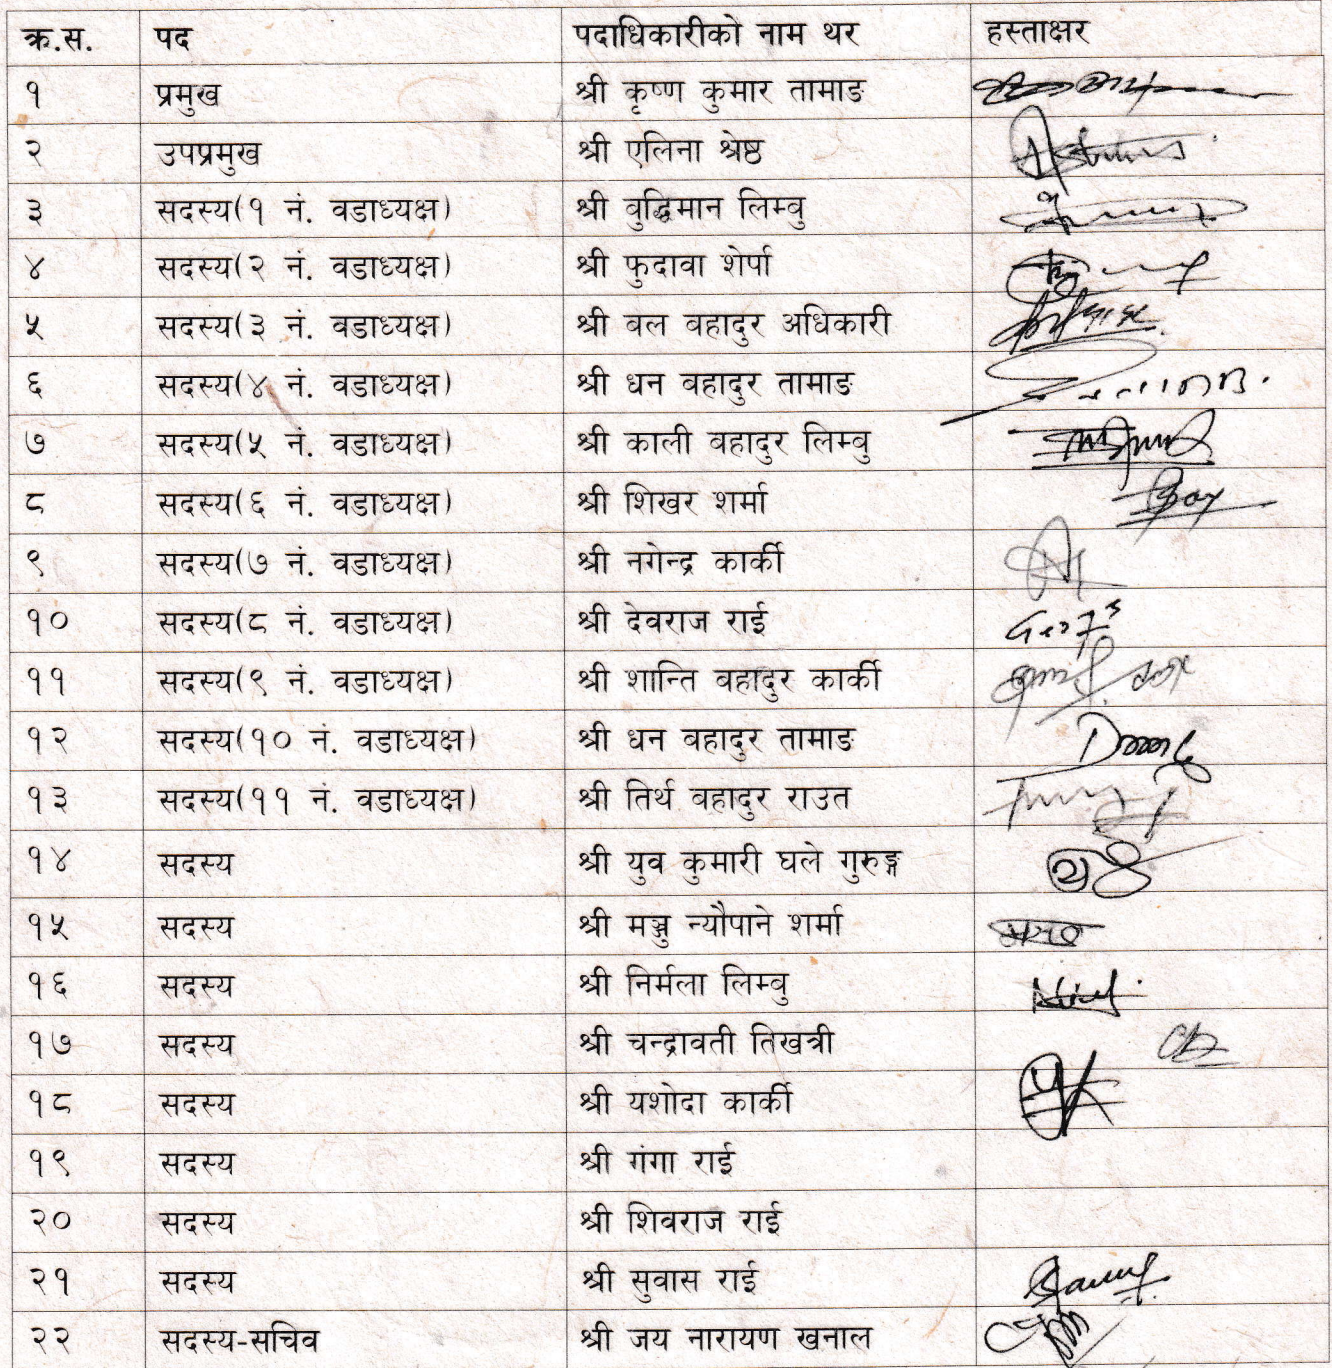 क्र.स. पद पदाधिकारीको नाम थर हस्ताक्षर
१ प्रमुख श्री कृष्ण कुमार तामाङ
२ उपप्रमुख श्री एलिना श्रेष्ठ
३ सदस्य(१ नं. वडाध्यक्ष) श्री वुद्धिमान लिम्वु
४ सदस्य(२ नं. वडाध्यक्ष) श्री फुदावा शेर्पा
५ सदस्य(३ नं. वडाध्यक्ष) श्री वल वहादुर अधिकारी
६ सदस्य(४ नं. वडाध्यक्ष) श्री धन वहादुर तामाङ
७ सदस्य(५ नं. वडाध्यक्ष) श्री काली वहादुर लिम्वु
८ सदस्य(६ नं. वडाध्यक्ष) श्री शिखर शर्मा
९ सदस्य(७ नं. वडाध्यक्ष) श्री नगेन्द्र कार्की
१० सदस्य(८ नं. वडाध्यक्ष) श्री देवराज राई
११ सदस्य(९ नं. वडाध्यक्ष) श्री शान्ति वहादुर कार्की
१२ सदस्य(१० नं. वडाध्यक्ष) श्री धन वहादुर तामाङ
१३ सदस्य(११ नं. वडाध्यक्ष) श्री तिर्थ वहादुर राउत
१४ सदस्य श्री युव कुमारी घले गुरुङ्ग
१५ सदस्य श्री मञ्जु न्यौपाने शर्मा
१६ सदस्य श्री निर्मला लिम्वु
१७ सदस्य श्री चन्द्रावती तिखत्री
१८ सदस्य श्री यशोदा कार्की
१९ सदस्य श्री गंगा राई
२० सदस्य श्री शिवराज राई
२१ सदस्य श्री सुवास राई
२२ सदस्य-सचिव श्री जय नारायण खनाल